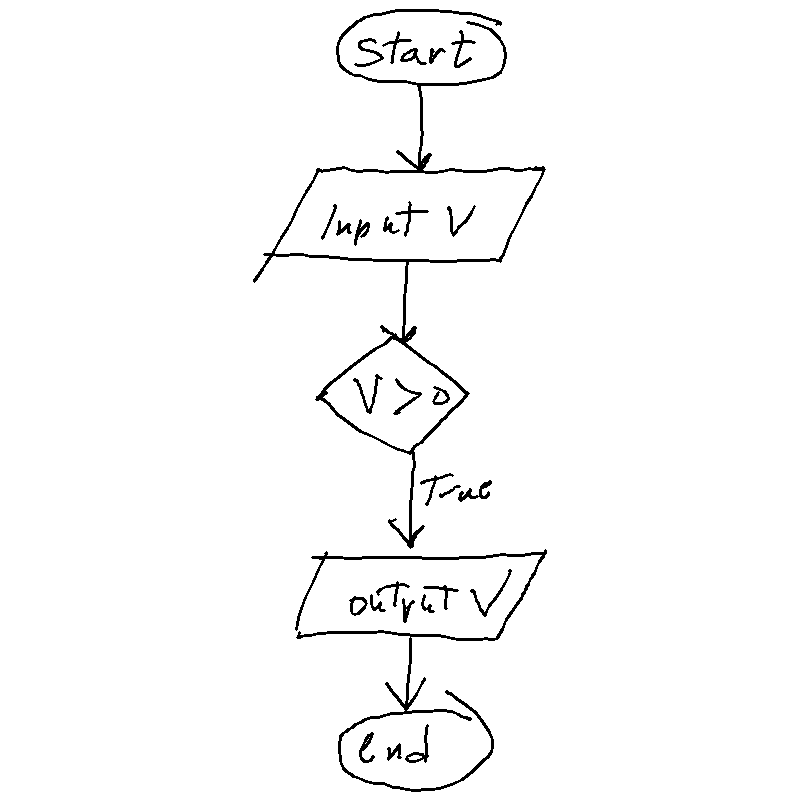 Start
Input V
V>0
True
output V
end